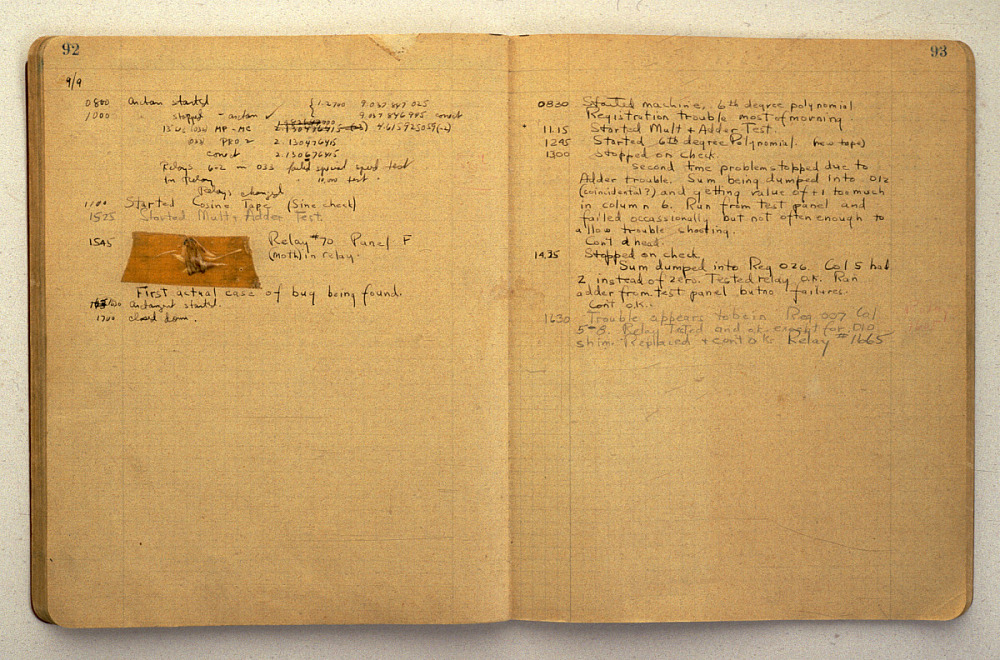 92
9/9
0800 Antan started
1000 stopped - antan ✓ { 1.2700 9.037 847 025
9.037 846 995 correct
13"UC (032) MP-MC 2.130476415 4.615925059(-2)
(033) PRO 2 2.130476415
correct 2.130676415
Relays 6-2 in 033 failed special speed test
in relay 10,000 test
Relays changed
1100 Started Cosine Tape (Sine check)
1525 Started Mult+Adder Test.
1545 Relay #70 Panel F
(moth) in relay.
First actual case of bug being found.
antangent started.
1700 closed down.
93
0830 Started machine, 6th degree polynomial
Registration trouble most of morning
11.15 Started Mult + Adder Test.
1245 Started 6th degree Polynomial. (new tape)
1300 Stopped on check.
Second time problem stopped due to
Adder trouble. Sum being dumped into 012
(coincidental?) and getting value of +1 too much
in column 6. Run from test panel and
failed occassionally but not often enough to
allow trouble shooting.
Cont'd head.
1435 Stopped on check
Sum dumped into Reg 026. Col 5 had
2 instead of zero. Tested relay o.k. Run
adder from test panel but no failures.
Cont o.k.
1630 Trouble appears to be in Reg 007 Col
5-8. Relay tested and ok except for .010
shim. Replaced + cont o.k. Relay #1665